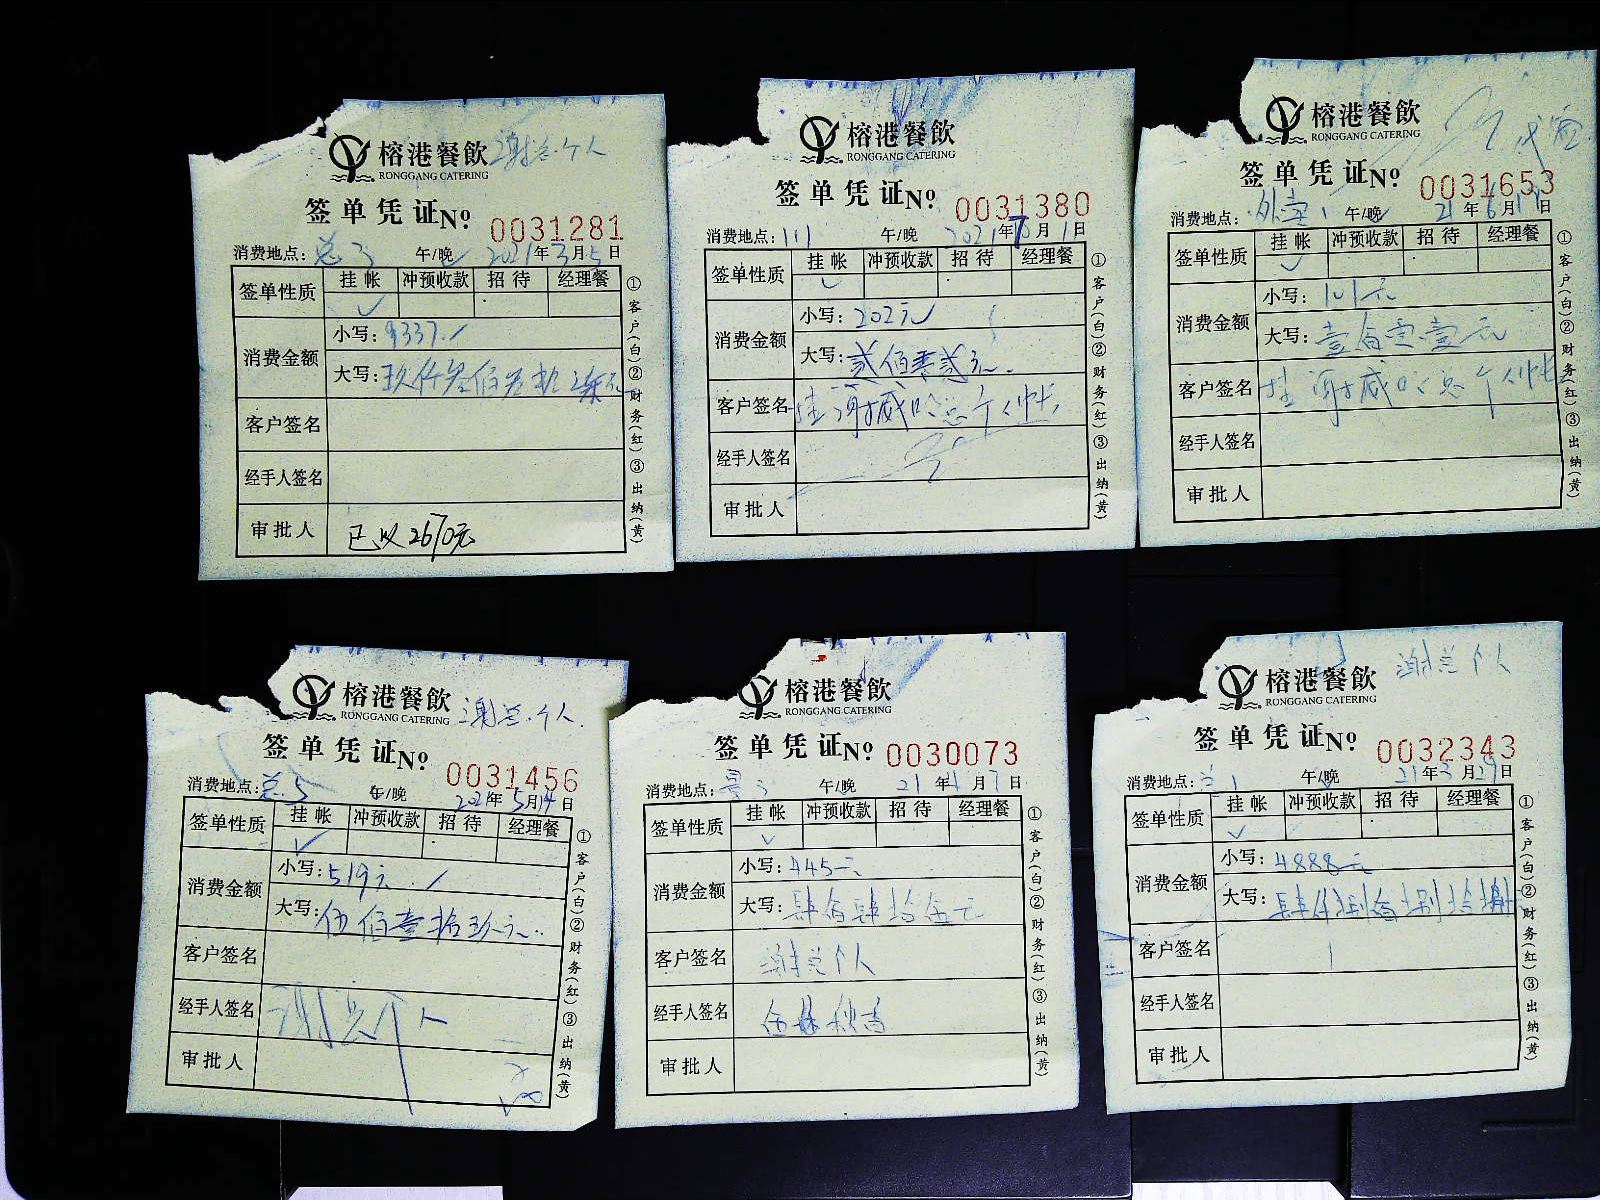 榕港餐飲 谢总.个人
RONGGANG CATERING
签单凭证№ 0031281
消费地点：总3 午/晚 2021年3月5日
签单性质 挂帐 冲预收款 招待 经理餐
✓
消费金额 小写：9337./
大写：玖仟叁佰叁拾柒元
客户签名
经手人签名
审批人 已收2670元
①客户(白)②财务(红)③出纳(黄)
榕港餐飲
RONGGANG CATERING
签单凭证№ 0031380
消费地点：111 午/晚 2021年 月1日
签单性质 挂帐 冲预收款 招待 经理餐
✓
消费金额 小写：202元
大写：贰佰零贰元.
客户签名 挂谢威 总个人帐
经手人签名
审批人
①客户(白)②财务(红)③出纳(黄)
榕港餐飲
RONGGANG CATERING
签单凭证№ 0031653
消费地点：外卖1 午/晚 21年6月17日
签单性质 挂帐 冲预收款 招待 经理餐
✓
消费金额 小写：101元
大写：壹佰零壹元
客户签名 挂谢威 总个人帐
经手人签名
审批人
①客户(白)②财务(红)③出纳(黄)
榕港餐飲 谢总.个人.
RONGGANG CATERING
签单凭证№ 0031456
消费地点：总5 午/晚 2021年5月14日
签单性质 挂帐 冲预收款 招待 经理餐
✓
消费金额 小写：519元./
大写：伍佰壹拾玖元..
客户签名
经手人签名 谢总个人
审批人
①客户(白)②财务(红)③出纳(黄)
榕港餐飲
RONGGANG CATERING
签单凭证№ 0030073
消费地点： 午/晚 21年 月7日
签单性质 挂帐 冲预收款 招待 经理餐
✓
消费金额 小写：445元
大写：肆佰肆拾伍元
客户签名 谢总个人
经手人签名
审批人
①客户(白)②财务(红)③出纳(黄)
榕港餐飲 谢总个人
RONGGANG CATERING
签单凭证№ 0032343
消费地点：总1 午/晚 21年3月29日
签单性质 挂帐 冲预收款 招待 经理餐
✓
消费金额 小写：4888元
大写：肆仟捌佰捌拾捌
客户签名
经手人签名
审批人
①客户(白)②财务(红)③出纳(黄)